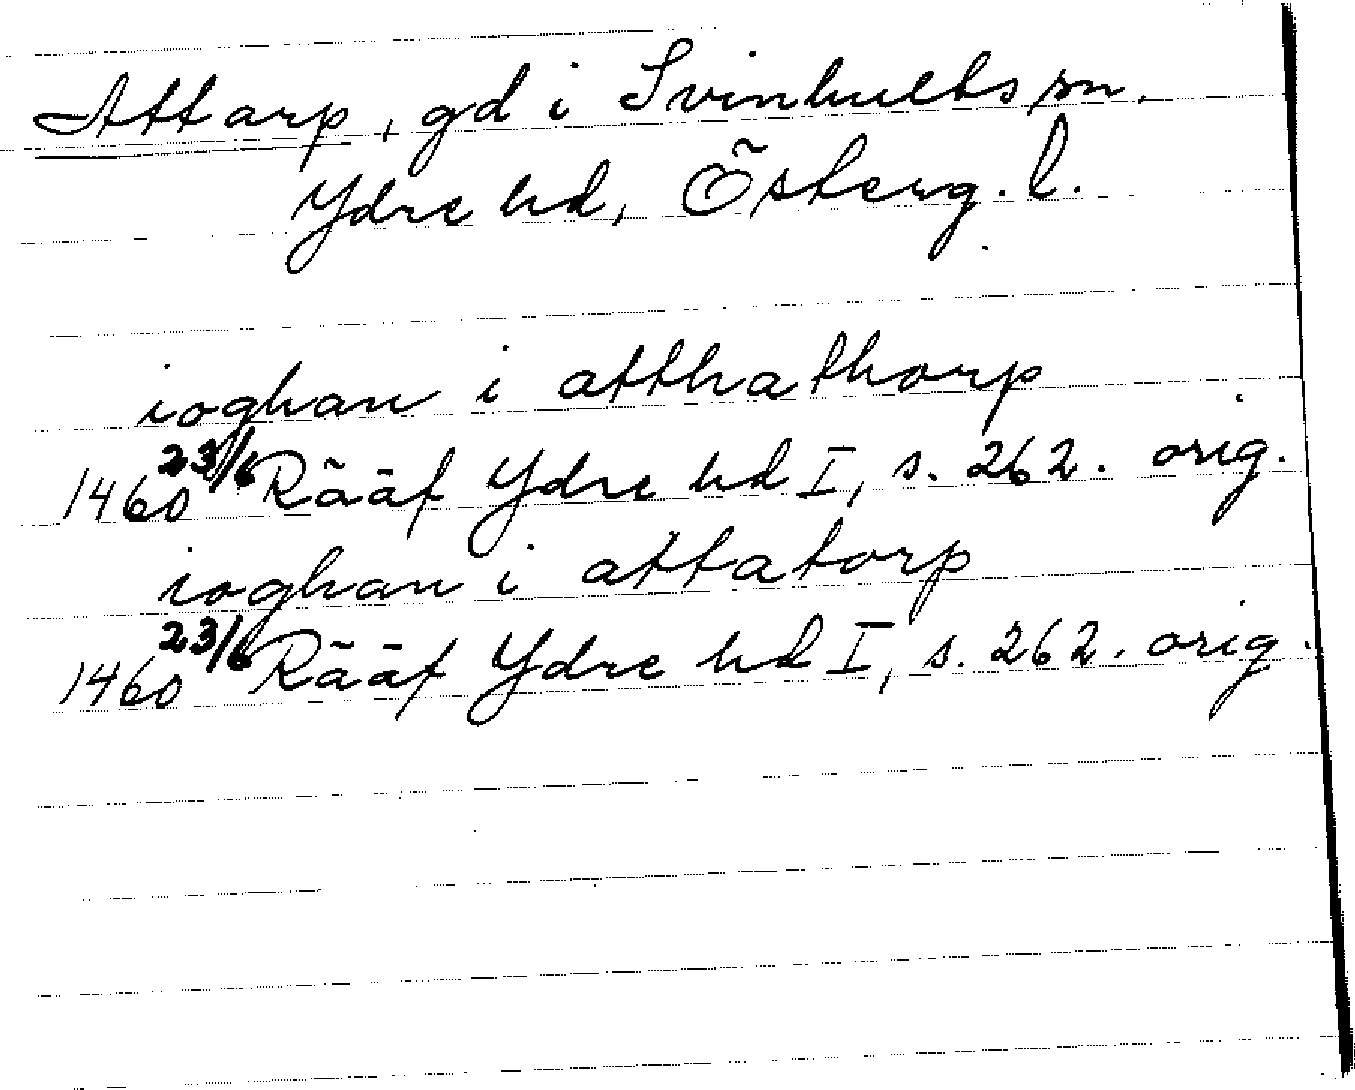 Attarp, gd i Svinhults sn.
Ydre hd, Österg. l.
ioghan i atthathorp
1460 23/6 Rääf Ydre hd I, s. 262. orig.
ioghan i attatorp
1460 23/6 Rääf Ydre hd I, s. 262. orig.